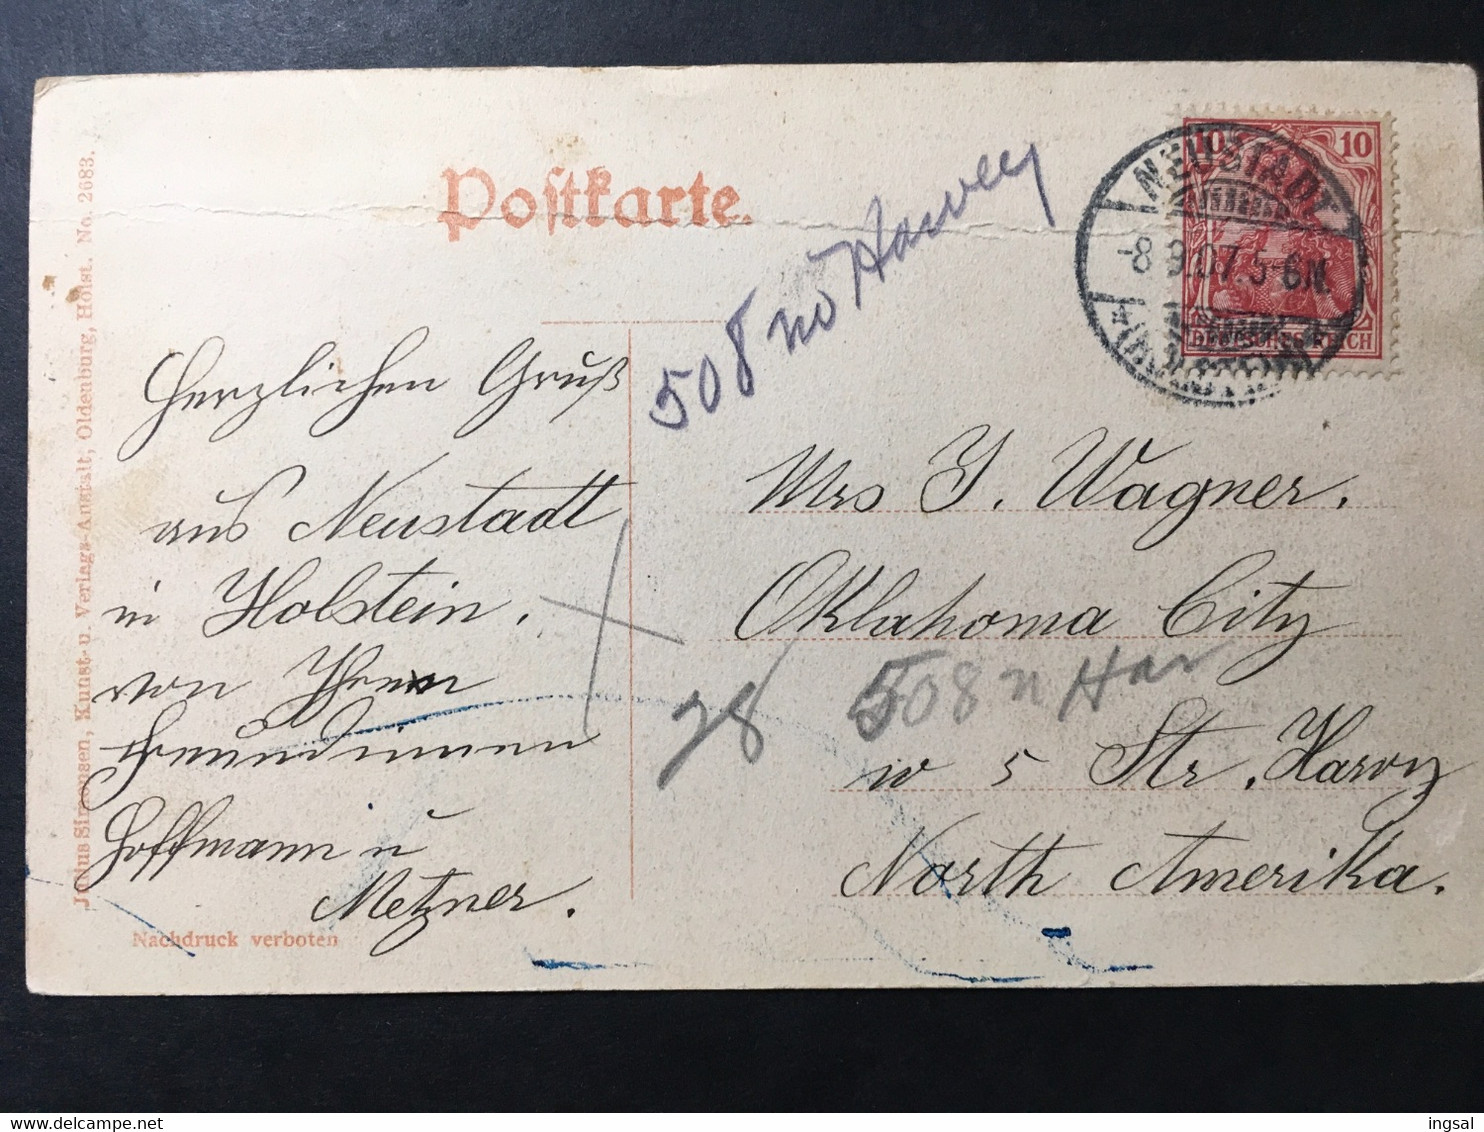 Postkarte.
508 no Harvey
10 10
NEUSTADT
-8 9.07.5-6N.
(HOLSTEIN)
DEUTSCHES REICH
Herzlichen Gruß
aus Neustadt
in Holstein.
von Ihren
Freundinnen
Hoffmann u
Metzner.
Mrs J. Wagner.
Oklahoma City
508 n Har
28
w 5 Str. Harvy
North Amerika.
Julius Simonsen, Kunst- u. Verlags-Anstalt, Oldenburg, Holst. No. 2683.
Nachdruck verboten
Delcampe.net
ingsal